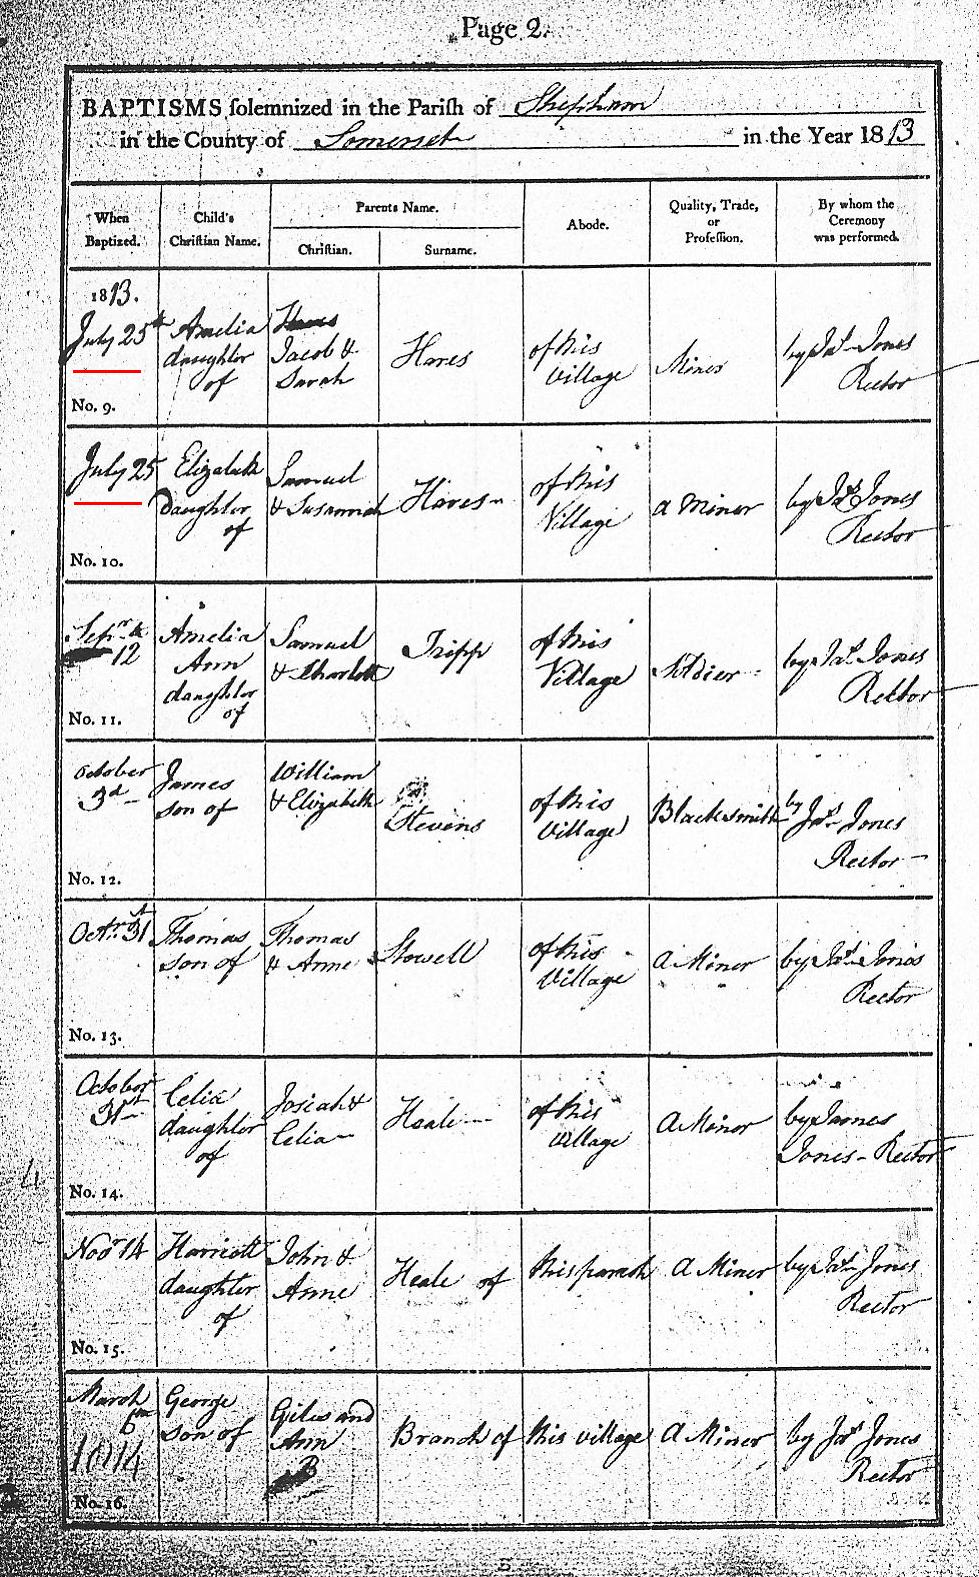 Page 2.
BAPTISMS solemnized in the Parish of Shipham
in the County of Somerset in the Year 1813
When Baptized.
Child's Christian Name.
Parents Name.
Christian.
Surname.
Abode.
Quality, Trade, or Profession.
By whom the Ceremony was performed.
1813.
July 25th
No. 9.
Amelia
daughter
of
Hares
Jacob &
Sarah
Hares
of this
Village
Miner
by Jas. Jones
Rector
July 25
No. 10.
Elizabeth
Daughter
of
Samuel
& Susannah
Hares
of this
Village
a Miner
by Jas. Jones
Rector
Sepr. 12
No. 11.
Amelia
Ann
daughter
of
Samuel
& Charlotte
Tripp
of this
Village
Soldier
by Jas. Jones
Rector
October
3d
No. 12.
James
son of
William
& Elizabeth
Stevens
of this
Village
Blacksmith
by
Jas. Jones
Rector
Octr. 31
No. 13.
Thomas
son of
Thomas
& Anne
Stowell
of this
Village
A Miner
by Jas. Jones
Rector
October
31st
No. 14.
Celia
daughter
of
Josiah &
Celia
Heale
of this
village
A Miner
by James
Jones - Rector
Novr 14
No. 15.
Harriott
daughter
of
John &
Anne
Heale of
this parish
A Miner
by Jas. Jones
Rector
March
6th
1814
No. 16.
George
son of
Giles and
Ann
B
Branch of
this village
A Miner
by Jas. Jones
Rector